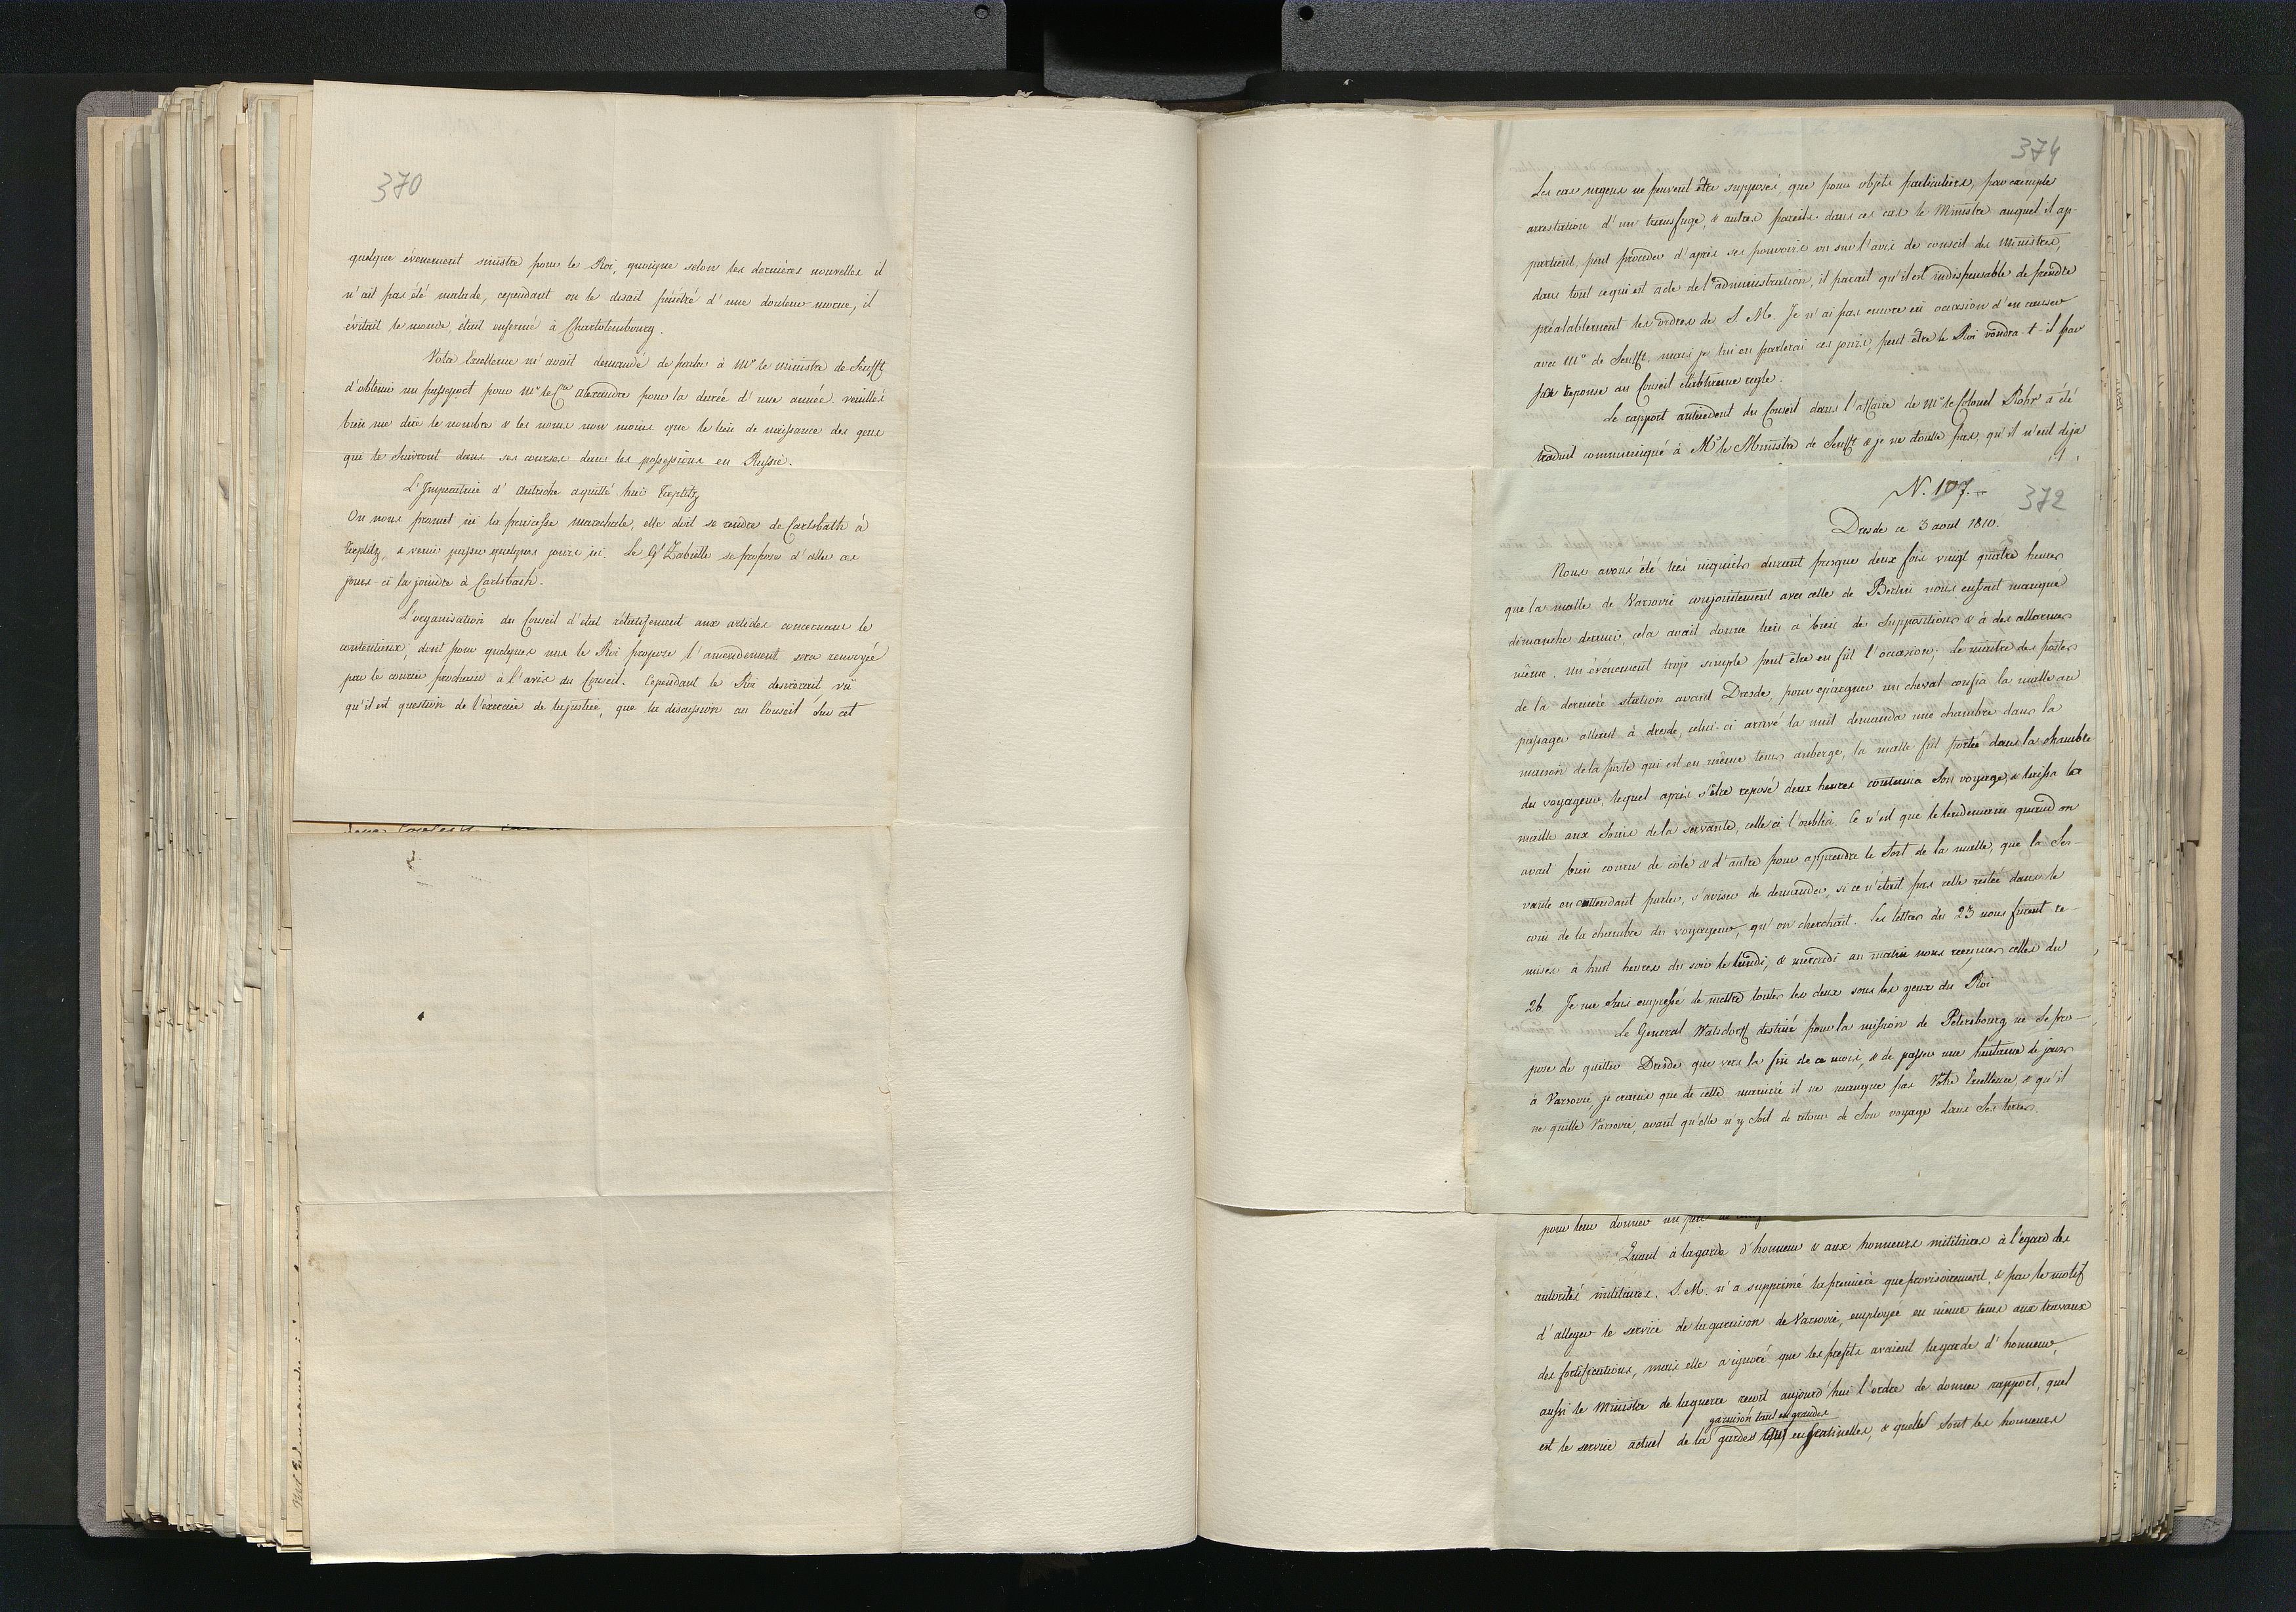 370
quelque évenement sinistre pour le Roi, quoique selon les dernières nouvelles il
n'ait pas été malade, cependant on le disait pénétré d'une douleur morne, il
évitait le monde, était enfermé à Charlotembourg.
Votre Excellence m'avait demandé de parler à Mr le ministre de Senfft
d'obtenir un passeport pour Mr le Cte Alexandre pour la durée d'une année. veuillés
bien me dire le nombre & les noms non moins que le lieu de naissance des gens
qui le Suivront dans ses courses dans les possessions en Russie.
L'Imperatrice d'Autriche a quitté hier Toeplitz
On nous promet ici la princesse marechale, elle doit se rendre de Carlsbath à
Toeplitz, & venir passer quelques jours ici. Le Gl Zabiello se propose d'aller ces
jours-ci la joindre à Carlsbath.
L'organisation du Conseil d'état rélativement aux articles concernant le
contentieux, dont pour quelques uns le Roi propose l'amendement sera renvoyée
par le courier prochain à l'avis du Conseil. Cependant le Roi desirerait vû
qu'il est question de l'exercice de la justice, que la discussion au Conseil Sur cet
374
Les cas urgens ne peuvent être supposés, que pour objets particuliers, par exemple
arrestation d'un transfuge, & autres pareils. dans ces cas le Ministre auquel il ap-
partient, peut proceder d'après ses pouvoirs ou sur l'avis de conseil des Ministres,
dans tout ce qui est acte de l'administration, il parait qu'il est indispensable de prendre
préalablement les ordres de S. M. Je n'ai pas encore eu occasion d'en causer
avec Mr de Senfft, mais je lui en parlerai ces jours, peut-être le Roi voudra-t-il par
Sa reponse au Conseil établir une regle.
Le rapport antécedent du Conseil dans l'affaire de Mr le Colonel Rohr a été
traduit communiqué à Mr le Ministre de Senfft & je ne doute pas, qu'il n'ait déja
N. 107.
372
Dresde ce 3 aout 1810.
Nous avons été très inquiets durant presque deux fois vingt quatre heures
que la malle de Varsovie conjointement avec celle de Berlin nous eussent manqué
dimanche dernier, cela avait donné lieu a bien des Suppositions & à des allarmes
même. un évenement trop simple peut être en fût l'occasion; le maitre des postes
de la dernière station avant Dresde, pour épargner un cheval confia la malle au
passager allant à dresde, celui-ci arrivé la nuit demanda une chambre dans la
maison de la poste qui est en même tems auberge, la malle fût portée dans la chambre
du voyageur, lequel après s'être reposé deux heures continua Son voyage, & laissa la
malle aux Soins de la servante, celle ci l'oublia. Ce n'est que le lendemain quand on
avait bien couru de côté & d'autre pour apprendre le Sort de la malle, que la Ser-
vante en entendant parler, s'avisa de demander, si ce n'était pas celle restée dans le
coin de la chambre du voyageur, qu'on cherchait. Les lettres du 23 nous furent re-
mises à huit heures du soir le lundi, & mercredi au matin nous reçumes celles du
26. Je me Suis empressé de mettre toutes les deux sous les yeux du Roi
Le General Watsdorff destiné pour la mission de Pétersbourg ne Se pro-
pose de quitter Dresde que vers la fin de ce mois, & de passer une huitaine de jours
à Varsovie, je crains que de cette manière il ne manque pas Votre Excellence, & qu'il
ne quitte Varsovie, avant qu'elle n'y Soit de retour de Son voyage dans Ses terres.
pour leur donner un
Quant à la garde d'honneur & aux honneurs militaires à l'égard des
autorités militaires. S. M. n'a supprimé la première que provisoirement, & par le motif
d'alleger le service de la garnison de Varsovie, employée en même tems aux travaux
des fortifications, mais elle a ignoré que les prefets avaient la garde d'honneur,
aussi le Ministre de la guerre reçoit aujourd'hui l'ordre de donner rapport, quel
garnison tant en grandes
est le service actuel de la gardes qu'en Sentinelles, & quelles Sont les honneurs